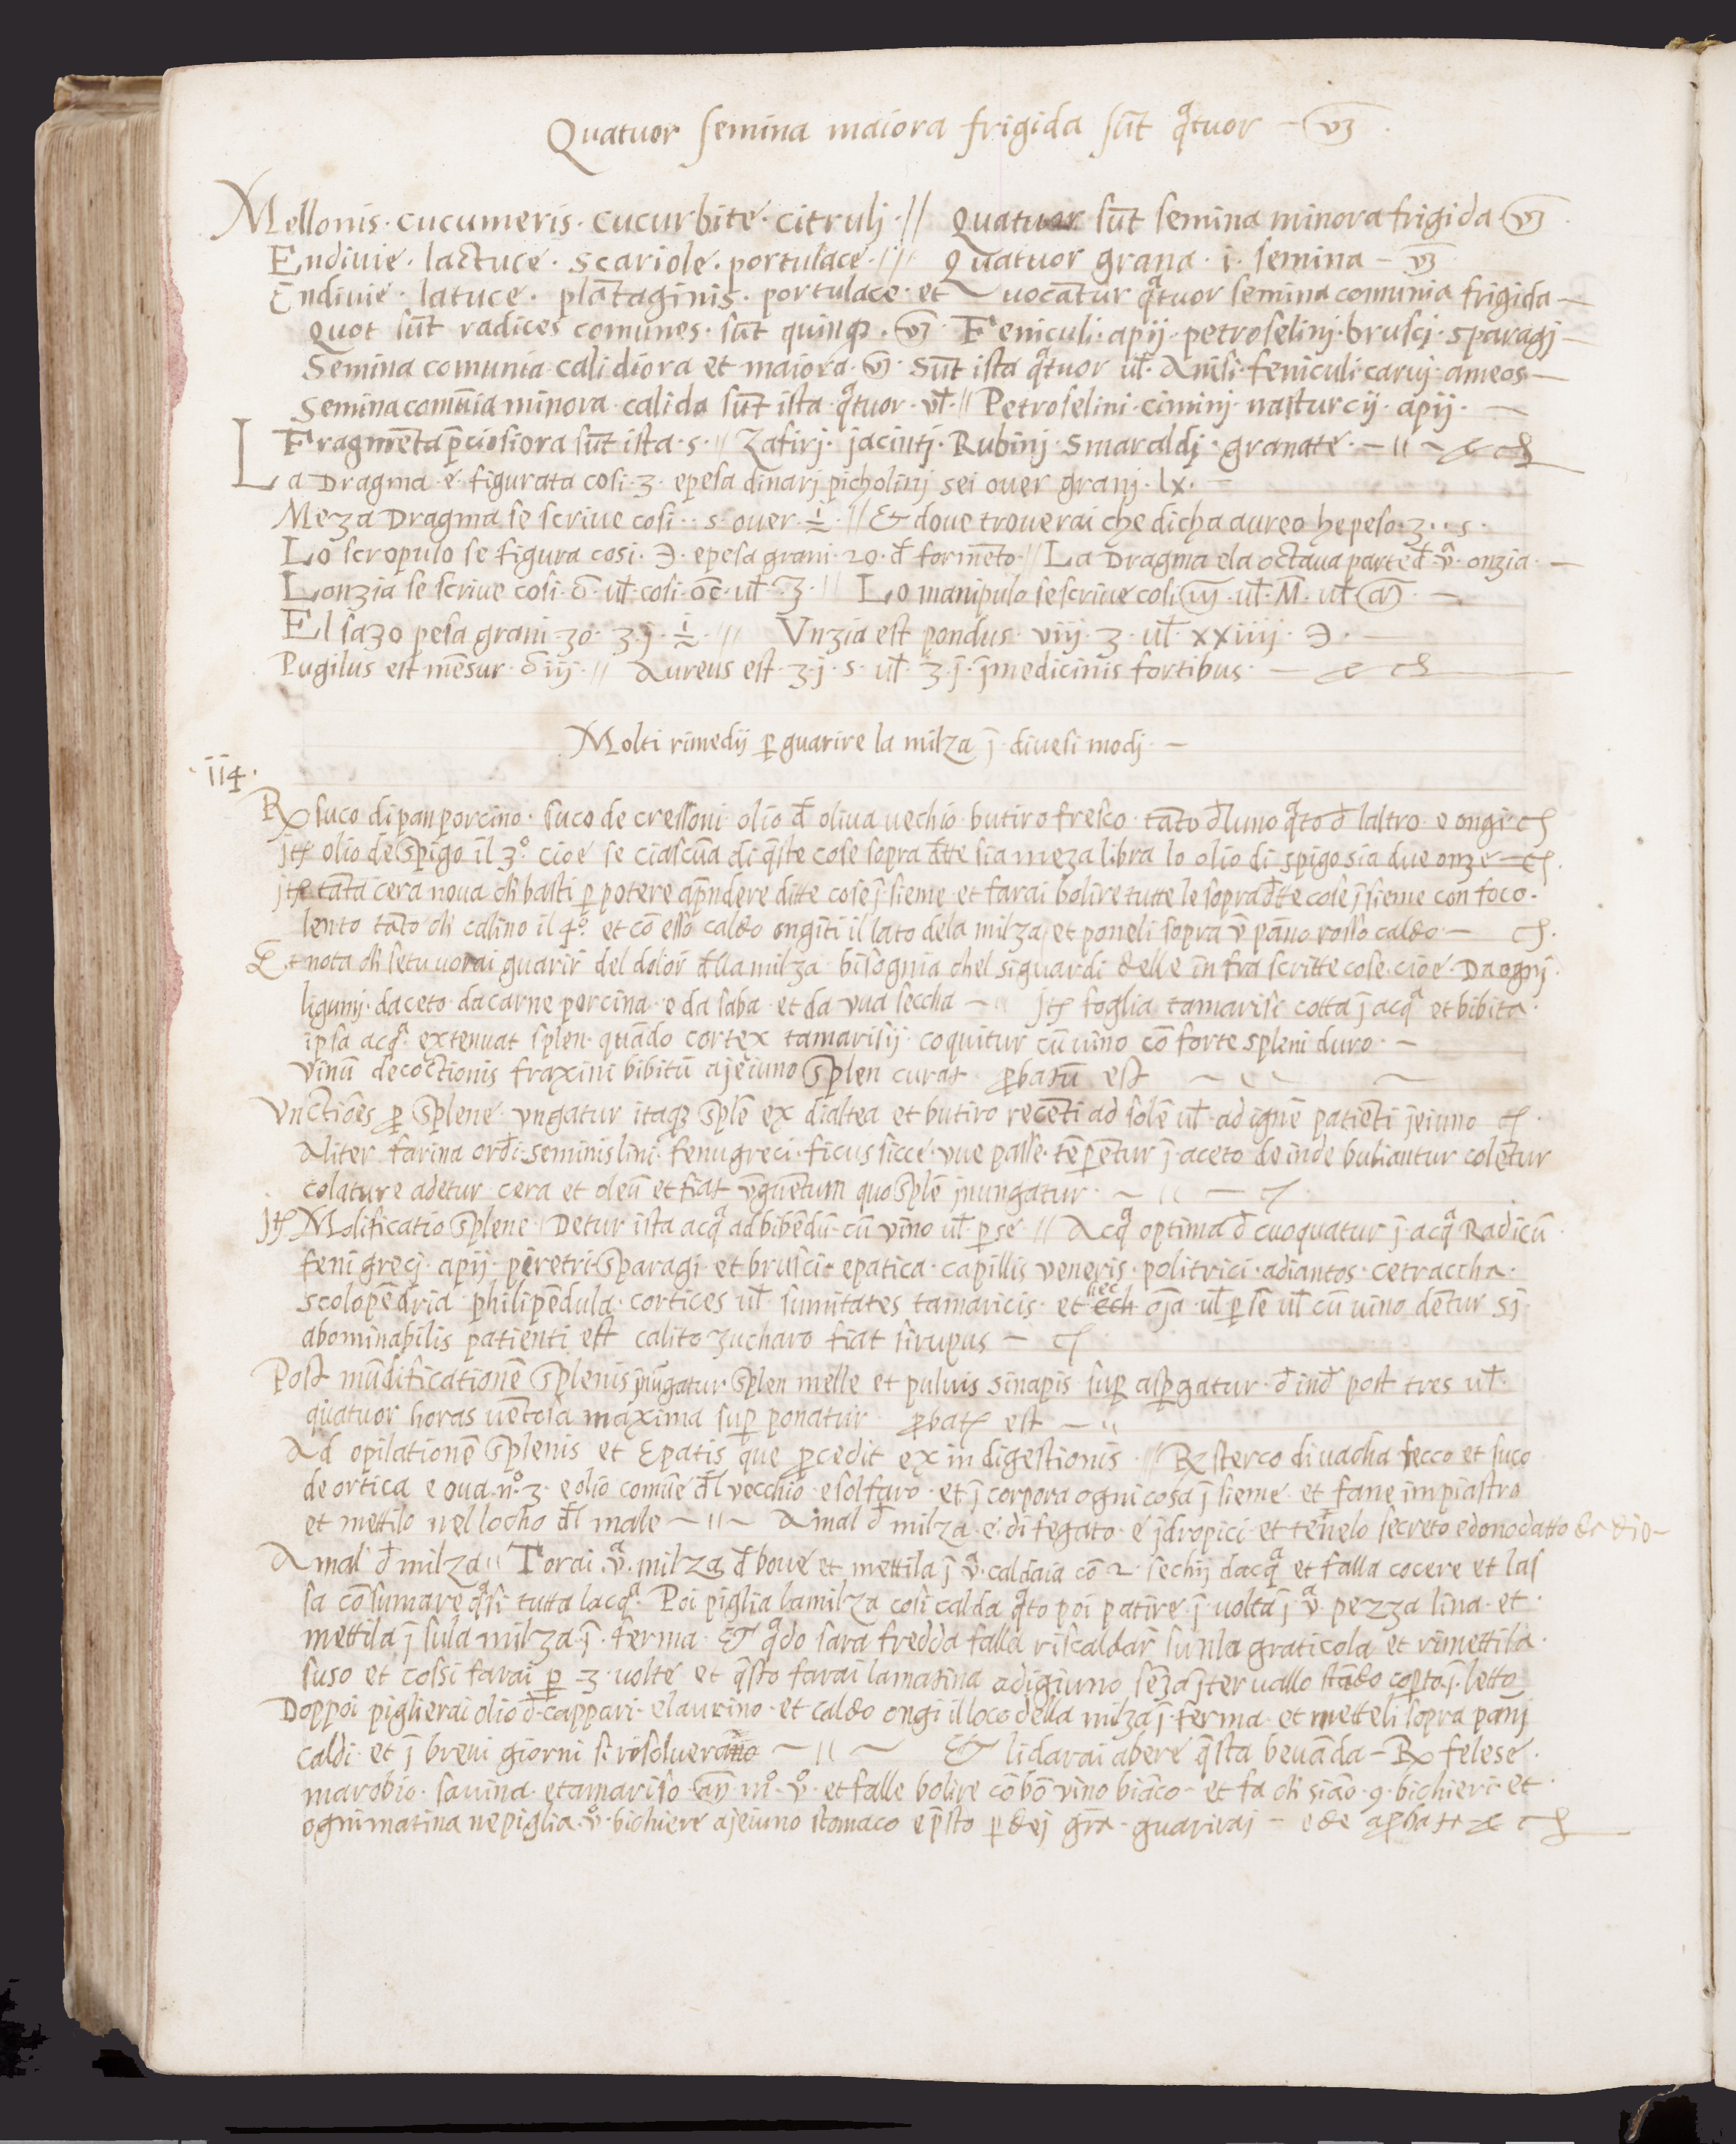 Quatuor semina maiora frigida sũt q̃tuor – vꝫ
Mellonis · cucumeris · cucurbite · citrulj // Quatuor sũt semina minora frigida vꝫ
Endiuie · lactuce · scariole · portulace · // Quatuor grana · i · semina – vꝫ
Endiuie · latuce · plãtaginis · portulace · et uocãtur q̃tuor semina comunia frigida —
Quot sũt radices comunes · sũt quinqꝫ · vꝫ · Feniculi · apij · petroselinj · bruscj · sparagj —
Semina comunia calidiora et maiora · vꝫ · sũt ista q̃tuor ul̃ · Anisi · feniculi · caruj · ameos —
Semina comũia minora calida sũt ista q̃tuor · ul̃ · // Petroselini · ciminj · nasturcij · apij · —
Fragmẽta p̃ciosiora sũt ista · s · // Zafirj · jacintj · Rubinj · Smaraldj · granate · — // ~
La Dragma · e · figurata cosi · ʒ · epesa dinarj picholinj sei ouer granj · lx · —
Meza Dragma se scriue cosi · · s · ouer · ½ · // Et doue trouerai che dicha aureo he peso · ʒ · · s ·
Lo scropulo se figura cosi · ℈ · epesa grani · 20 · d̃ formẽto · // La Dragma ela octaua parte d̃ · ṽ · onzia · —
Lonzia se scriue cosi · õ · ul̃ · cosi · oc̃ · ul̃ · ℥ · // Lo manipulo se scriue cosi m̃ · ul̃ · M̃ · ul̃ ·
El sazo pesa grani · 30 · ʒ · j · ½ · // Vnzia est pondus · viij · ʒ · ul̃ · xxiiij · ℈ · —
Pugilus est mẽsur · õ iij · // Aureus est · ʒ · j · s · ul̃ · ʒ · j · j̃ medicinis fortibus · —
Molti rimedij ꝑ guarire la milza j̃ · diuesi modj · —
· 114 ·
℞ suco di pan porcino · suco de cressoni · olio d̃ oliua uechio · butiro fresco · tãto d̃ luno q̃to d̃ laltro · e ongi
jtẽ olio de spigo il 3º · cioe se ciascũa di q̃ste cose sopra dtte sia meza libra lo olio di spigo sia due onze —
jtẽ tãta cera noua ch̃ basti ꝑ potere ap̃ndere ditte cose j̃ sieme · et farai bolire tutte le sopra dtte cose j̃ sieme con foco ·
lento tãto ch̃ calino il 4º · et cõ esso caldo ongiti il lato dela milza · et poneli sopra ṽ pãno rosso caldo —
Et nota ch̃ se tu uorai guarir̃ del dolor d̃lla milza · bisognia chel si guardi delle in fra scritte cose · cioe · Da ognj ·
ligunj · daceto · dacarne porcina · e da faba · et da vua seccha — jtẽ foglia tamarisc cotta j̃ acq̃ et bibita ·
ipsa acq̃ · extenuat splen · quãdo cortex tamarisij coquitur cũ uino cõforte spleni duro · —
Vinũ decoctionis fraxini bibitũ ajeiuno splen curat · ꝓbatũ est
Vnctiões ꝑ splene · vngatur itaqꝫ splẽ ex dialtea et butiro recẽti ad solẽ ul̃ · ad ignẽ patiẽti jeiuno
Aliter farina ordi · seminis lini · fenugreci · ficus sicce · vue passe · tẽpẽtur j̃ · aceto deinde buliantur colẽtur
colature adetur cera et oleũ et fiat ṽguẽtum quo splẽ jnungatur · —
jtẽ Molificatio splene · Detur ista acq̃ ad bibẽdũ · cũ vino ul̃ · ꝑ se // Acq̃ optima d̃ cuoquatur j̃ · acq̃ Radicũ
fenigrecj · apij · piretri · sparagi · et brusci · epatica · capillis veneris · politrici · adiantos · cetraccha ·
scolopẽdria · philipẽdula · cortices ul̃ · sumitates tamaricis · et hec oĩa · ul̃ ꝑ sẽ ul̃ cũ uino dẽtur sj ·
abominabilis patienti est calito zucharo fiat sirupus —
Post mũdificationẽ splenis jnũgatur splen melle et puluis sinapis suꝑ asp̃gatur · d̃ ind̃ post tres ul̃ ·
quatuor horas uẽtosa maxima suꝑ ponatur · ꝓbatũ est —
Ad opilationẽ splenis et Epatis que ꝓcedit ex indigestionis // ℞ sterco di uacha secco et suco
de ortica e oua · nº · 3 · e olio comũe d̃l vecchio · e solfaro · et j̃ corpora ogni cosa j̃ sieme · et fane impiastro
et mettilo nel locho d̃l male ~ // ~ Amal d̃ milza · e · di fegato · e jdropici · et tẽnelo secreto e dono datto da dio —
Amal d̃ milza // Torai · ṽ · milza d̃ boue et mettila j̃ ṽ · caldaia cõ 2 · sechij dacq̃ · et falla cocere et las
sa cõsumare q̃si tutta lacq̃ · Poi piglia lamilza cosi calda q̃to poi patire · j̃ · uolta j̃ · ṽ · pezza lina · et ·
mettila j̃ sula milza · j̃ · ferma · Et q̃do sara fredda falla riscaldar̃ su nla graticola et rimettila ·
suso et cossi farai ꝑ · 3 · uolte et q̃sto farai lamatina adigiuno sẽza j̃teruallo stãdo coꝑto · j̃ · letto
Doppoi piglierai olio d̃ · cappari · elaurino · et caldo ongi il loco della milza j̃ · ferma · et metteli sopra panj
caldi · et j̃ breui giorni si risoluerano ~ // ~ Et li darai abere q̃sta beuãda — ℞ felese ·
marobio · sauina · etamariso añ · mº · vº · et falle bolire cõ bõ vino biãco · et fa ch̃ siãо · 9 · bichieri · et ·
ogni matina ne piglia · vº · bichiere ajeiuno stomaco e p̃sto ꝑ dej gr̃a · guarirai — e de